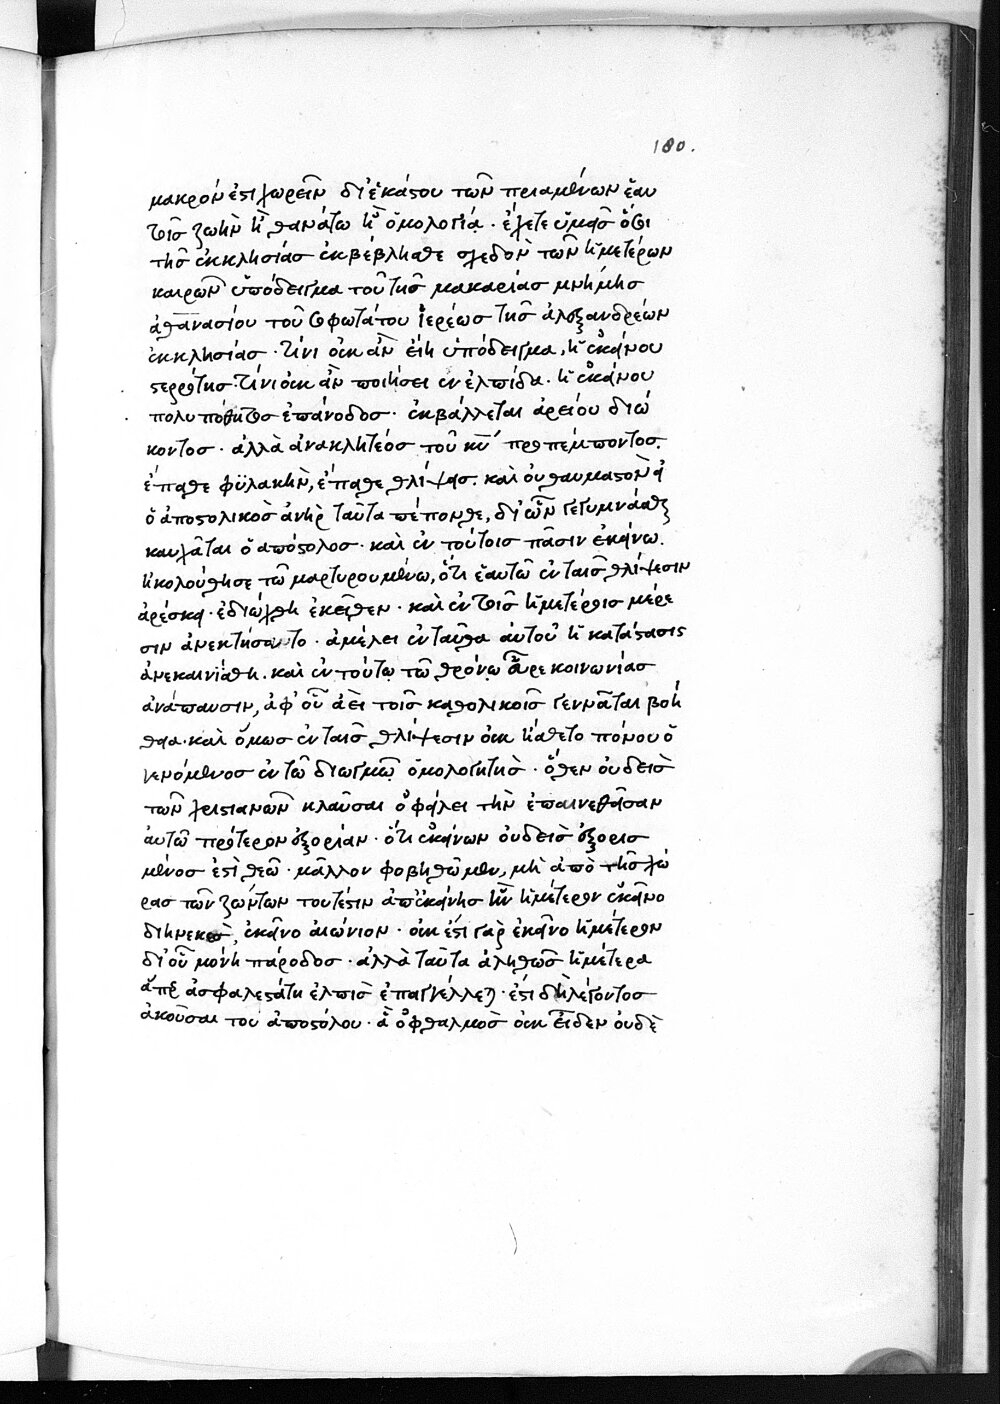 180.
μακρόν ἐστι χωρεῖν δι' ἑκάστου τῶν πριαμένων ἑαυ
τοῖς ζωὴν ἢ θανάτω ἢ ὁμολογία. ἔχετε ὑμᾶς ὅτι
τῆς ἐκκλησίας ἐκβέβλησθε σχεδὸν τῶν ἡμετέρων
καιρῶν ὑπόδειγμα τοῦ τῆς μακαρίας μνήμης
ἀθανασίου τοῦ τροφωτάτου ἱερέως τῆς ἀλεξανδρέων
ἐκκλησίας. τίνι οὐκ ἂν εἴη ὑπόδειγμα, ἡ ἐκείνου
στερρότης. τίνι οὐκ ἂν ποιήσει ἐν ἐλπίδα. ἡ ἐκείνου
πολυπόθητος ἐπάνοδος. ἐκβάλλεται ἀρείου διώ
κοντος. ἀλλὰ ἀνακλητέος τοῦ κυ προπέμποντος.
ἔπαθε φϋλακὴν, ἔπαθε θλίψας. καὶ οὐ θαυμαστὸν εἰ
ὁ ἀποστολικὸς ἀνὴρ ταῦτα πέπονθε, δι' ὧν γεγυμνάσθαι
καυχᾶται ὁ ἀπόστολος. καὶ ἐν τούτοις πᾶσιν ἐκείνω.
ἠκολούθησε τῶ μαρτυρουμένω, ὅτι ἑαυτῶ ἐν ταῖς θλίψεσιν
ἀρέσκει. ἐδιώχθη ἐκεῖθεν. καὶ ἐν τοῖς ἡμετέροις μέρε
σιν ἀνεκτήσατο. ἀμέλει ἐνταῦθα αὐτοῦ ἡ κατάστασις
ἀνεκαινίσθη. καὶ ἐν τούτω τῶ θρόνω εὗρε κοινωνίας
ἀνάπαυσιν, ἀφ' οὗ ἀεὶ τοῖς καθολικοῖς γεννᾶται βοή
θεια. καὶ ὅμως ἐν ταῖς θλίψεσιν οὐκ ἤσθετο πόνου ὁ
γενόμενος ἐν τῶ διωγμῶ ὁμολογητὴς. ὅθεν οὐδεὶς
τῶν χριστιανῶν κλαῦσαι ὀφείλει τὴν ἐπαινεθεῖσαν
αὐτῶ πρότερον ἐξορίαν. ὅτι ἐκείνων οὐδεὶς ἐξορισ
μένος ἐστὶ θεῶ. μᾶλλον φοβηθῶμεν, μὴ ἀπὸ τῆς χώ
ρας τῶν ζώντων τουτέστιν ἀπ' ἐκείνης ἣν ἡμέτερον ἐκεῖνο
διηνεκὲς, ἐκεῖνο αἰώνιον. οὐκ ἔστι γὰρ ἐκεῖνο ἡμέτερον
δι' οὗ μόνη πάροδος. ἀλλὰ ταῦτα ἀληθῶς ἡμέτερα
ἅπερ ἀσφαλεστάτη ἐλπὶς ἐπαγγέλλεται. ἔστι δὴ λέγοντος
ἀκοῦσαι του ἀποστόλου. ἃ ὀφθαλμὸς οὐκ εἶδεν οὐδὲ